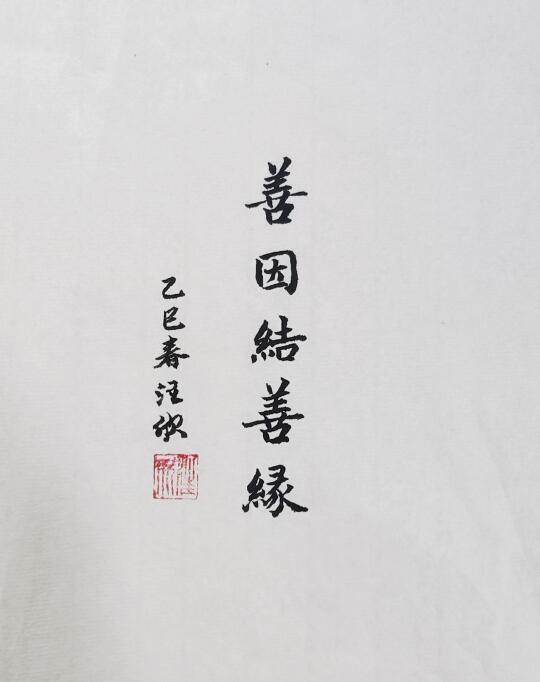 善因結善緣
乙巳春汪欣